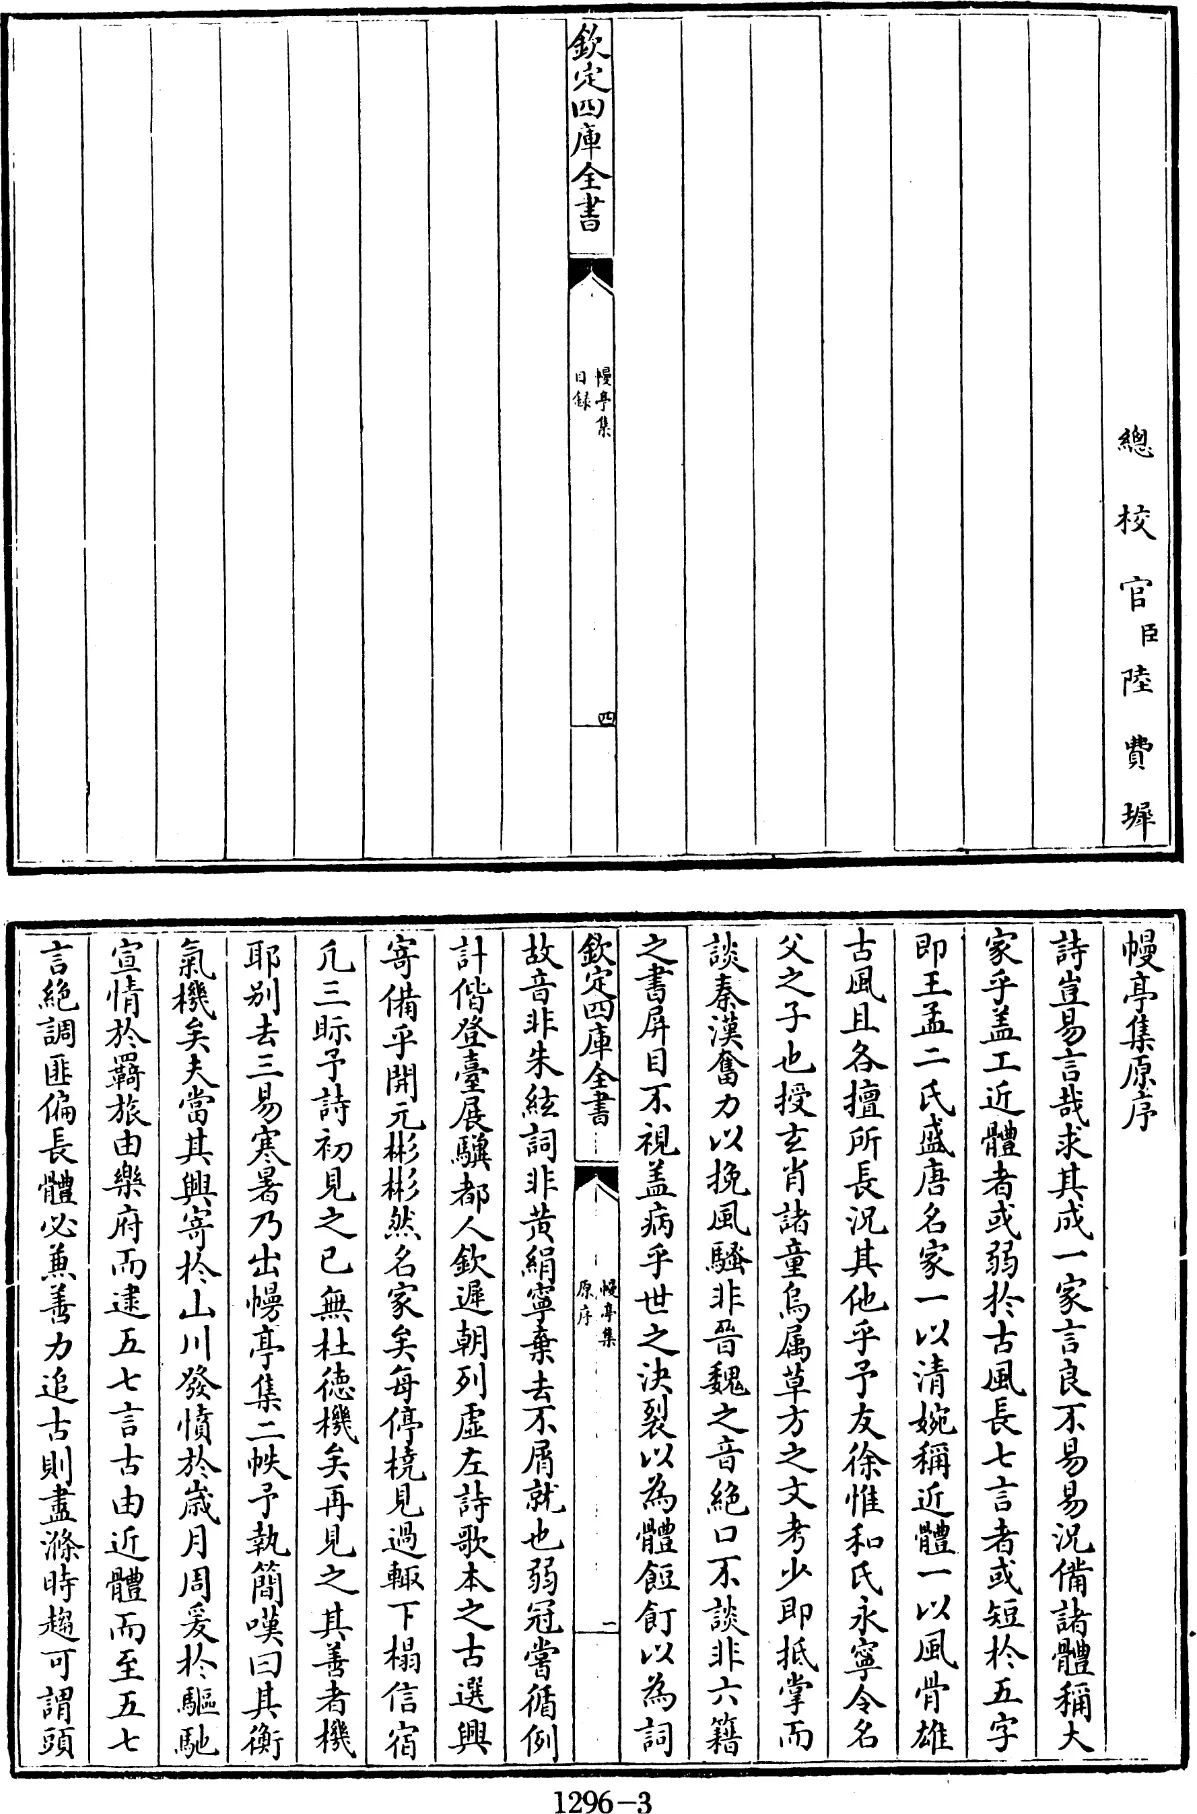 總校官臣陸費墀
欽定四庫全書
幔亭集
目録
四
幔亭集原序
詩豈易言哉求其成一家言良不易易況備諸體稱大
家乎盖工近體者或弱於古風長七言者或短於五字
即王孟二氏盛唐名家一以清婉稱近體一以風骨雄
古風且各擅所長況其他乎予友徐惟和氏永寧令名
父之子也授玄肖諸童烏属草方之文考少即抵掌而
談秦漢奮力以挽風騷非晉魏之音絶口不談非六籍
之書屏目不視盖病乎世之決裂以為體飽飣以為詞
欽定四庫全書
幔亭集
原序
一
故音非朱絃詞非黄絹寧棄去不屑就也弱冠嘗循例
計偕登臺展驥都人欽遲朝列虛左詩歌本之古選興
寄備乎開元彬彬然名家矣每停橈見過輙下榻信宿
凡三眎予詩初見之已無杜德機矣再見之其善者機
耶别去三易寒暑乃出幔亭集二帙予執簡嘆曰其衡
氣機矣夫當其興寄於山川發憤於歲月周爰於驅馳
宣情於羇旅由樂府而逮五七言古由近體而至五七
言絶調匪偏長體必兼善力追古則盡滌時趨可謂頭
1296-3